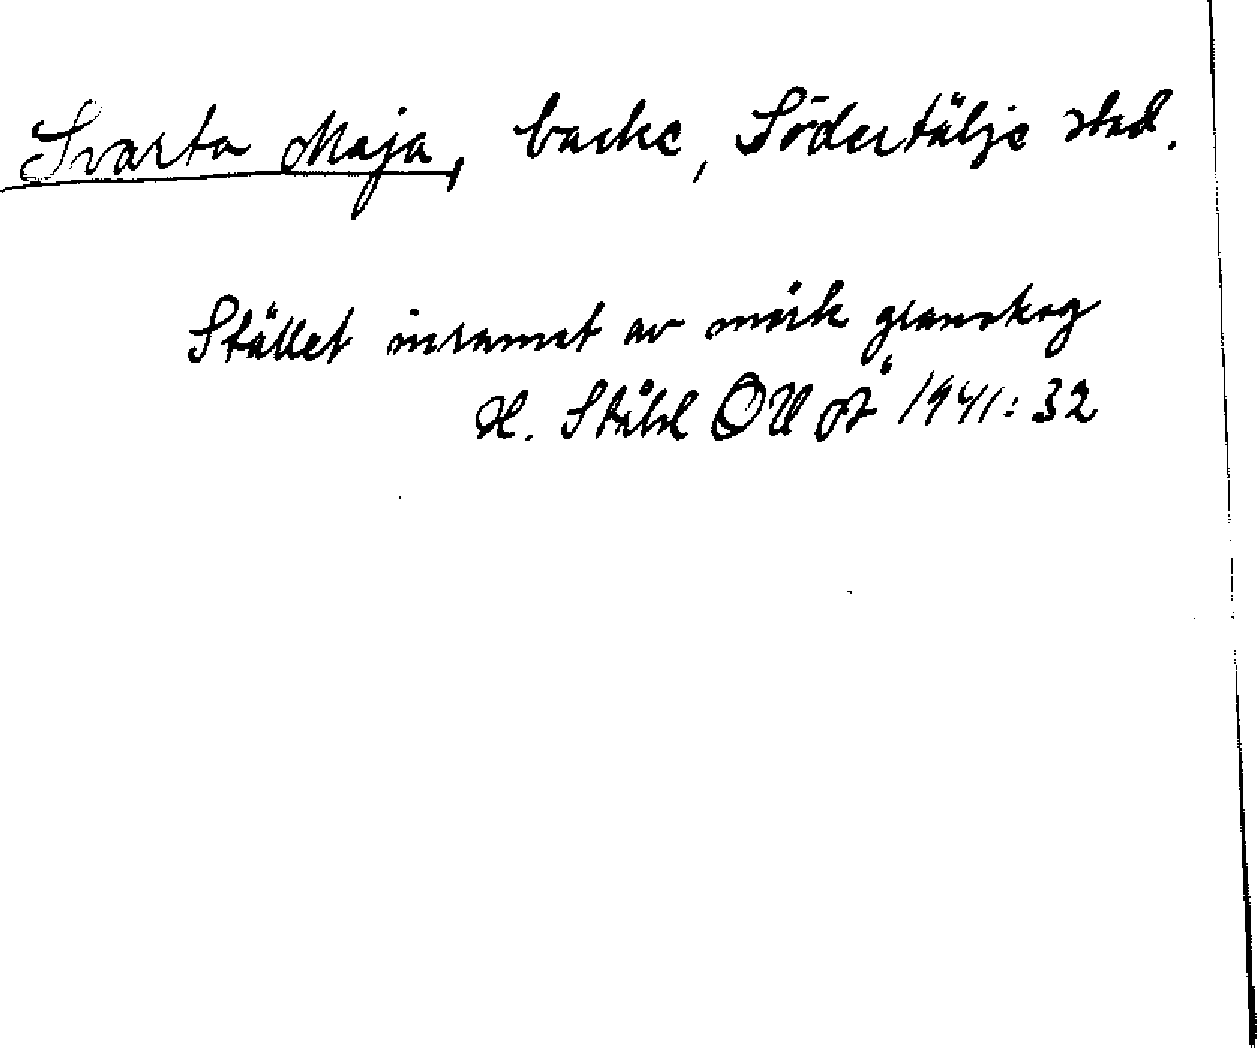 Svarta Maja, backe, Södertälje stad.
Stället inramat av mörk granskog
H. Ståhl 1941: 32